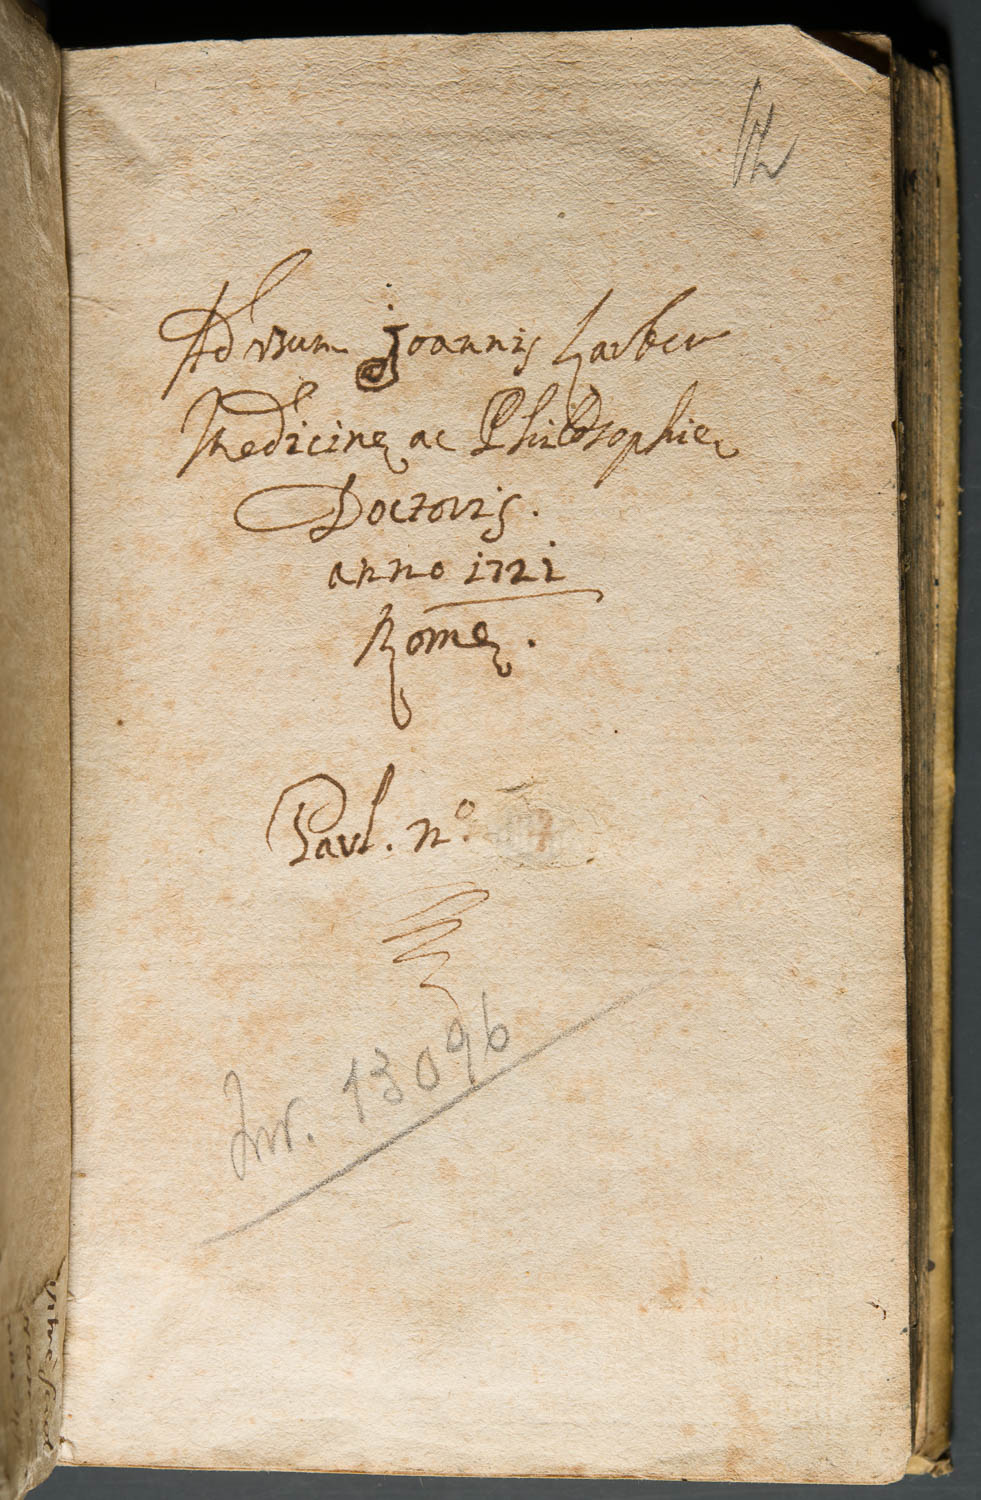 Ad usum Joannis
Medicinę ac Philosophię
Doctoris.
anno 1721
Romę.
Paul. nº
Inv. 13096